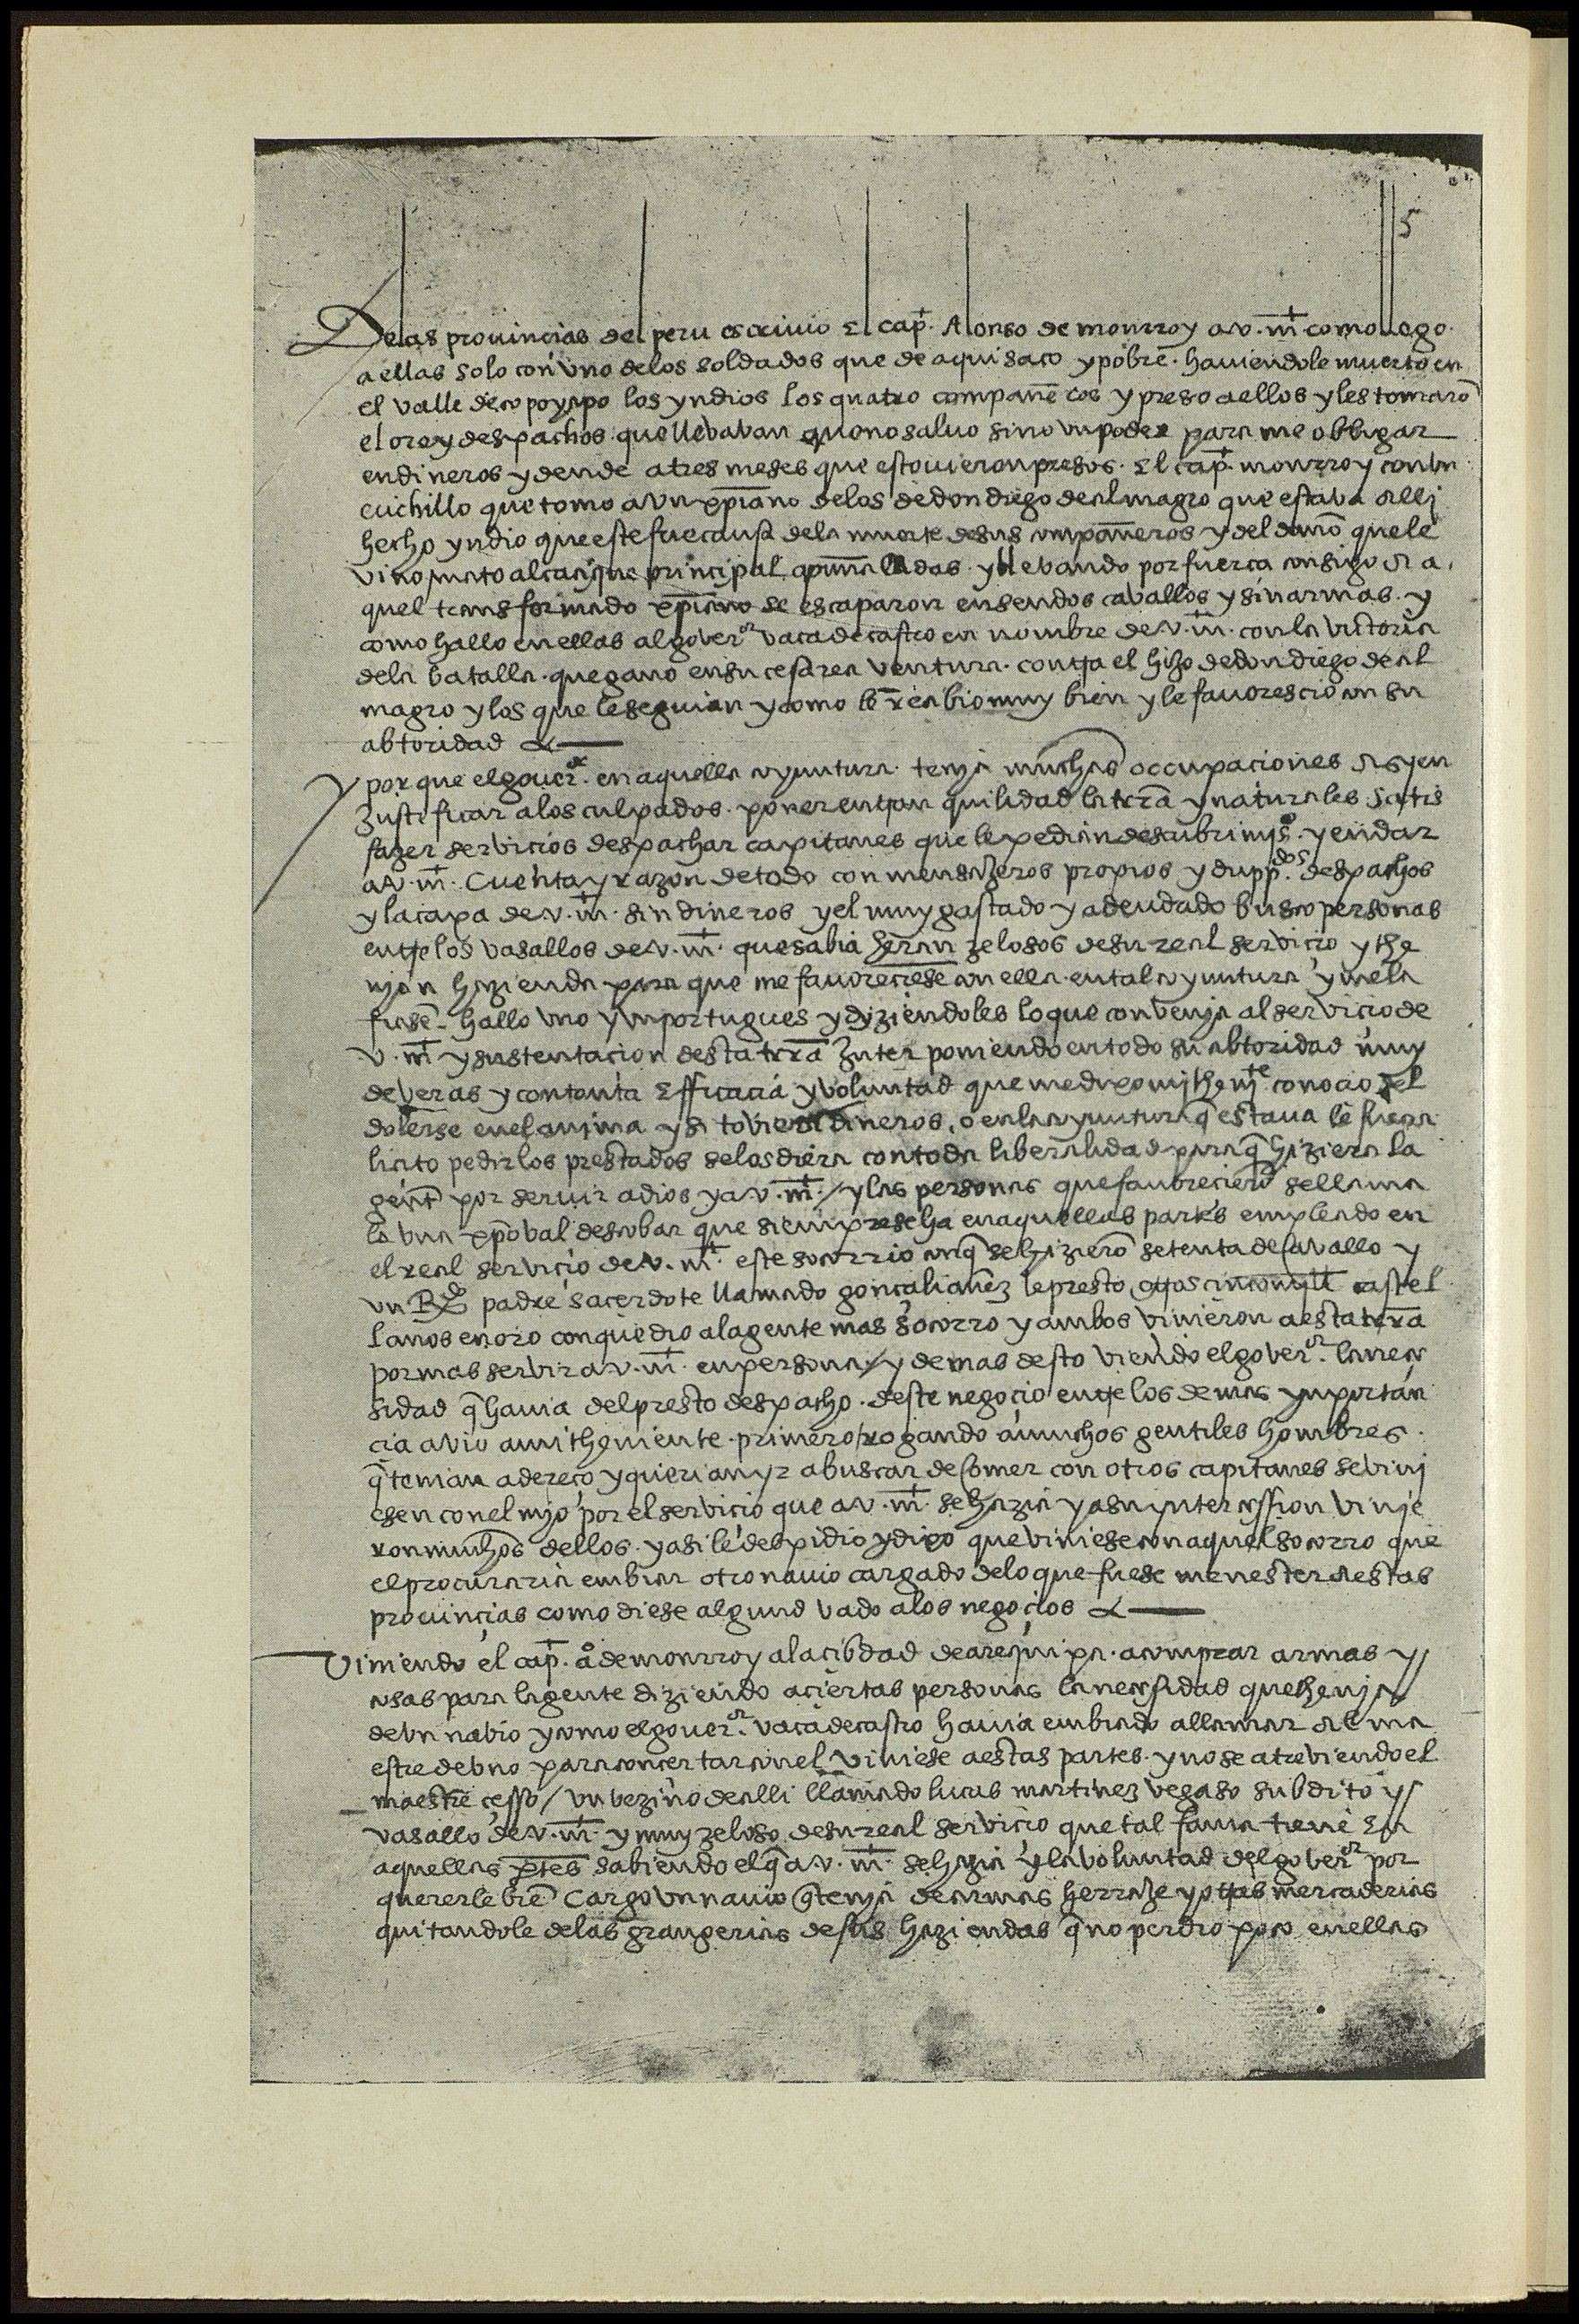 5
Delas prouincias del peru escriuio El capⁿ. Alonso de monrroy a v. m̄ como llego.
a ellas solo con vno delos soldados que de aqui saco y pobre. hauiendole muerto en
el valle de copoyapo los yndios los quatro compan̄eros y preso a ellos y les tomarō
el oro y despachos que llebavan que no saluo sino vn poder para me obligar
en dineros y dende a tres meses que estouieron presos. El capⁿ. monrroy con vn
cuchillo que tomo a vn xp̄iano delos de don diego de almagro que estava alli
hecho yndio que este fue causa dela muerte desus compan̄eros y del dan̄o que le
vino mato al caçique principal a pun̄aladas. y llebando por fuerça consigo a a.
quel transformado xp̄iano se escaparon en sendos cavallos y sin armas. y
como hallo en ellas al goverᵒʳ vaca de castro en nombre de v. m̄. con la victoria
dela batalla. que gano en su cesarea ventura. contra el hijo de don diego de al
magro y los que le seguian y como le rescibio muy bien y le fauorescio con su
abtoridad
y porque el gouerᵒʳ. en aquella coyuntura. tenja muchas occupaciones asy en
justificar a los culpados. poner en tranquilidad la trr̄a y naturales satis
fazer servicios despachar capitanes que le pedian descubrimjᵒˢ. y en dar
a v. m̄. cuenta y razon de todo con mensajeros propios y dupp.ᵈᵒˢ despachos
y la caxa de v. m̄. sin dineros y el muy gastado y adeudado busco personas
entre los vasallos de v. m̄. que sabia heran zelosos de su real servicio y the
njan hazienda para que me favoreciese con ella. en tal coyuntura y me la
fiase. hallo vno y vn portugues y diziendoles lo que convenja al servicio de
v. m̄ y sustentacion desta trr̄a interponiendo en todo su abtoridad muy
de veras y con tanta Efficacia y voluntad que me dixo mj thenjᵗᵉ conocio del
dolerse en el anima y si toviera dineros, o en la coyuntura q̄ estaua le fuera
licito pedirlos prestados selos diera con toda liberalidad para q̄ hiziera la
gente por seruir a dios y a v. m̄. / y las personas que fauorecierō se llama
la vna xp̄oval descobar que siempre se ha en aquellas partes empleado en
el real servicio de v. m̄. este socorrio con q̄ se hizierō setenta de cavallo y
vn Rᵈᵒ padre sacerdote llamado gonçalian̄ez le presto otros cinco mill castel
lanos en oro con que dio a la gente mas socorro y ambos vinieron a esta trr̄a
por mas servir a v. m̄. en persona / y demas desto viendo el goverᵒʳ. la nece
sidad q̄ hauia del presto despacho. deste negocio entre los demas ymportan
cia avio a mi theniente. primero / rogando a muchos gentiles hombres.
q̄ tenian adereço y querian yr a buscar de comer con otros capitanes se vinj
esen con el mjo por el servicio que a v. m̄. se hazia y a su intercession vinje
ron muchos dellos. y asi le despidio y dixo que viniese con aquel socorro que
el procuraria embiar otro nauio cargado de lo que fuese menester a estas
prouinçias como diese algund vado a los negoçios
Viniendo el capⁿ. aº de monrroy a la cibdad de arequipa. a comprar armas y
cosas para la gente diziendo a ciertas personas la necessidad que thenja
de vn nabio y como el gouerᵒʳ. vaca de castro hauia embiado a llamar al ma
estre de vno para concertar con el viniese a estas partes. y no se atreviendo el
maestre cesso / vn vezino de alli llamado lucas martinez vegaso subdito y
vasallo de v. m̄. y muy zeloso de su real servicio que tal fama tiene En
aquellas p̄tes sabiendo el q̄ a v. m̄. se hazia y la voluntad del goverᵒʳ por
quererle biē cargo vn nauio q̄ tenja de armas herraje y otras mercaderias
quitandole delas grangerias de sus haziendas q̄ no perdio poco en ellas